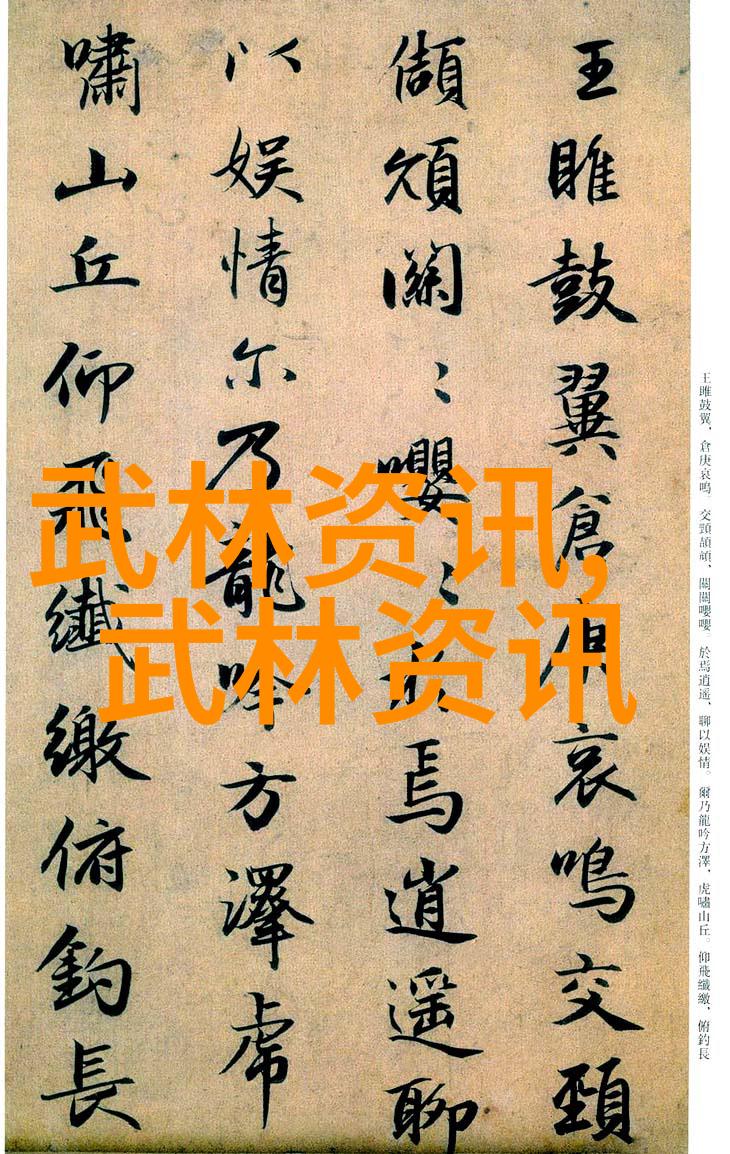 王雎鼓翼倉庚哀鳴交頸
頡頏關〻嚶〻於焉逍遥聊
以娱情尔乃龍吟方澤虎
嘯山丘仰飛纖繳俯釣長
王雎鼓翼，倉庚哀鳴。交頸頡頏、關關嚶嚶。於焉逍遥，聊以娱情。爾乃龍吟方澤，虎嘯山丘。仰飛纖繳，俯釣長
武林资讯,
武林资讯